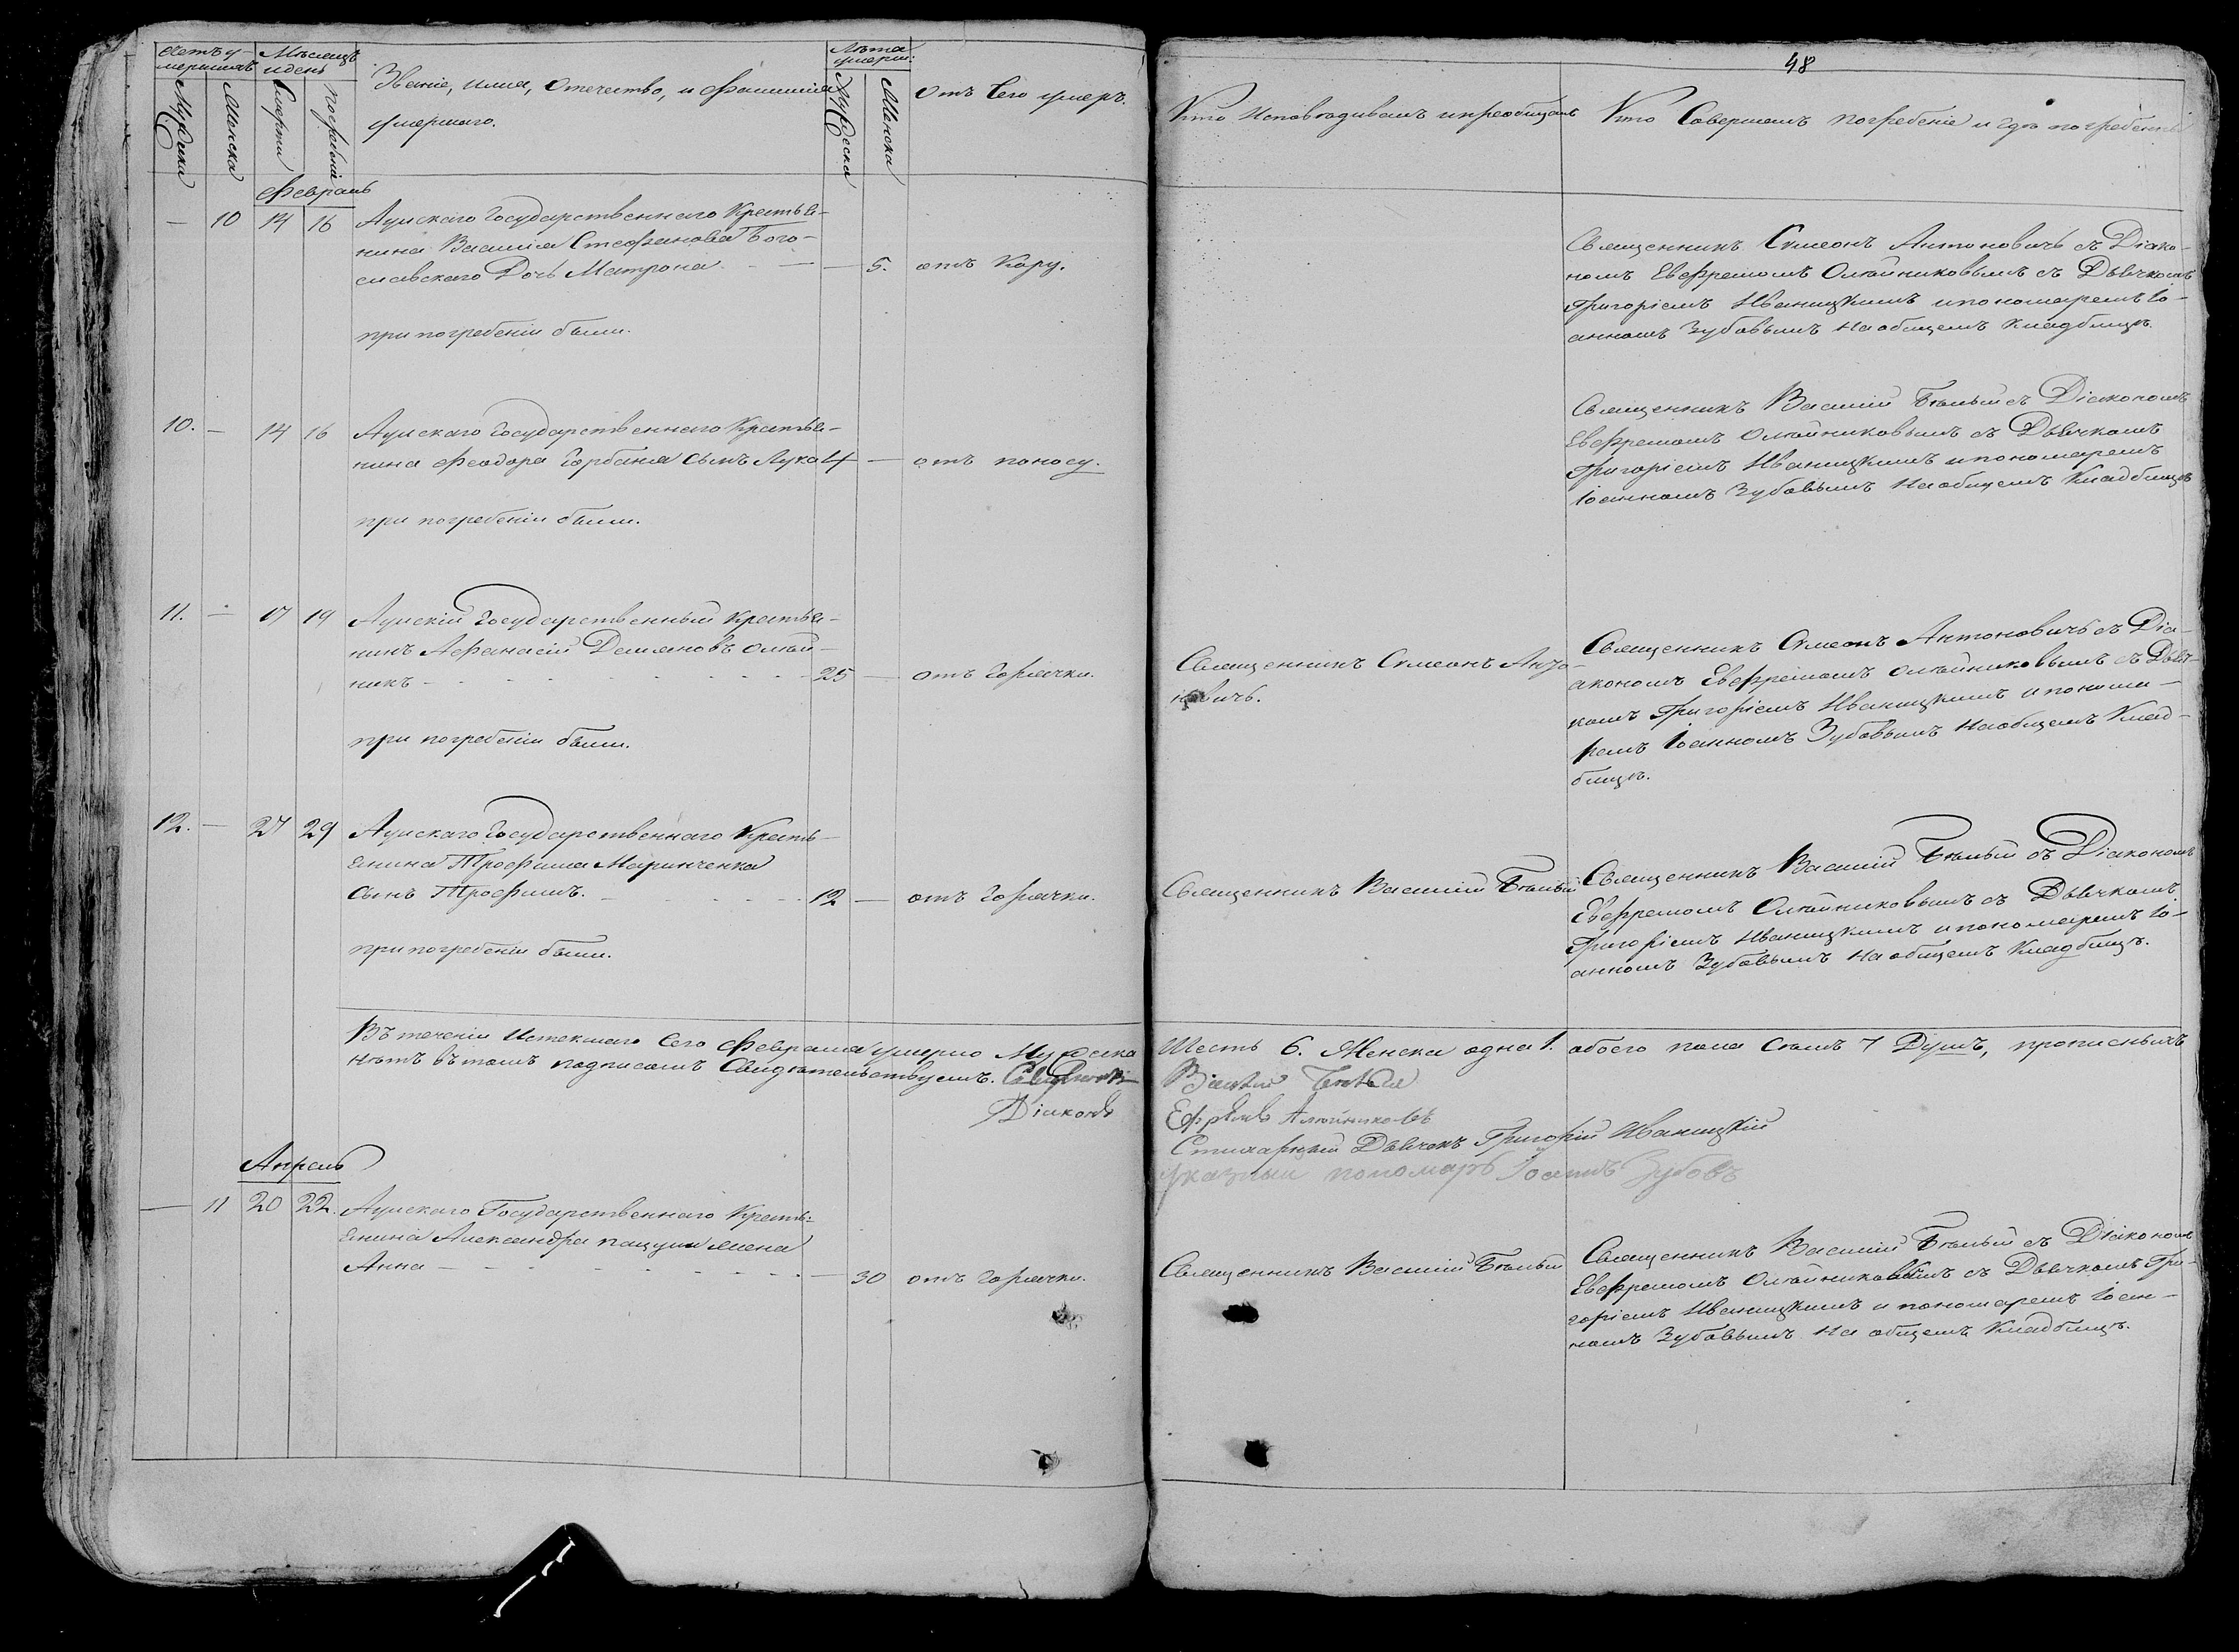 48
Счетъ у-
мершихъ
Мужска
Женска
Мѣсяцъ
и день
Смерти
погребенія
Званіе, имя, отечество, и фамилія
умершаго.
Лѣта
умерш:
Мужеска
Женска
Отъ Чего умеръ.
Кто Исповѣдивалъ и преобщалъ
Кто Совершалъ погребеніе и гдѣ погребены
Февраль
— 10 14 16 Аулскаго Государственнаго Крестья-
нина Василія Стефанова Бого-
славскаго Дочь Матрона — — 5. отъ Кору.
при погребеніи были.
Священникъ Симеонъ Антоновичь съ Діако-
номъ Евфремомъ Олѣйниковымъ съ Дьячкомъ
Григоріемъ Иваницкимъ и пономаремъ Іо-
анномъ Зубовымъ На общемъ Кладбищѣ.
10. — 14 16 Аулскаго Государственнаго Крестья-
нина Феодора Горбаня Сынъ Лука 4 — отъ поносу.
при погребеніи были.
Священникъ Василій Бѣлый съ Діакономъ
Евфремомъ Олѣйниковымъ съ Дьячкомъ
Григоріемъ Иваницкимъ и пономаремъ
Іоанномъ Зубовымъ На общемъ Кладбищѣ
11. — 17 19 Аулскій Государственный Крестья-
нинъ Афанасій Демяновъ Олѣй-
никъ — 25 — отъ Горячки.
при погребеніи были.
Священникъ Симеонъ Анто-
новичь.
Священникъ Симеонъ Антоновичь съ Ді-
акономъ Евфремомъ Олѣйниковымъ съ Дьяч-
комъ Григоріемъ Иваницкимъ и понома-
ремъ Іоанномъ Зубовымъ На общемъ Клад-
бищѣ.
12. — 27 29 Аулскаго Государственнаго Кресть-
янина Трофима Маринченка
Сынъ Трофимъ. 12 — отъ Горячки.
при погребеніи были.
Священникъ Василій Бѣлый
Священникъ Василій Бѣлый съ Діакономъ
Евфремомъ Олѣйниковымъ съ Дьячкомъ
Григоріемъ Иваницкимъ и пономаремъ Іо-
анномъ Зубовымъ На общемъ Кладбищѣ.
Въ теченіи Истекшаго Сего Февраля умерло Мужеска Шесть 6. Женска одна 1. обоего пола Сѣмъ 7 Душъ, прописныхъ
нѣтъ въ томъ подписомъ Свидѣтельствуемъ. Священникъ Василій Бѣлый
Діаконъ Ефремъ Алѣйниковъ
Стихарный Дьячокъ Григорій Иваницкій
указный пономарь Іоаннъ Зубовъ
Апрель
— 11 20 22. Аулскаго Государственнаго Кресть-
янина Александра Пацули жена
Анна — — 30 отъ Горячки.
Священникъ Василій Бѣлый
Священникъ Василій Бѣлый съ Діакономъ
Евфремомъ Олѣйниковымъ съ Дьячкомъ Гри-
горіемъ Иваницкимъ и пономаремъ Іоан-
номъ Зубовымъ На общемъ Кладбищѣ.